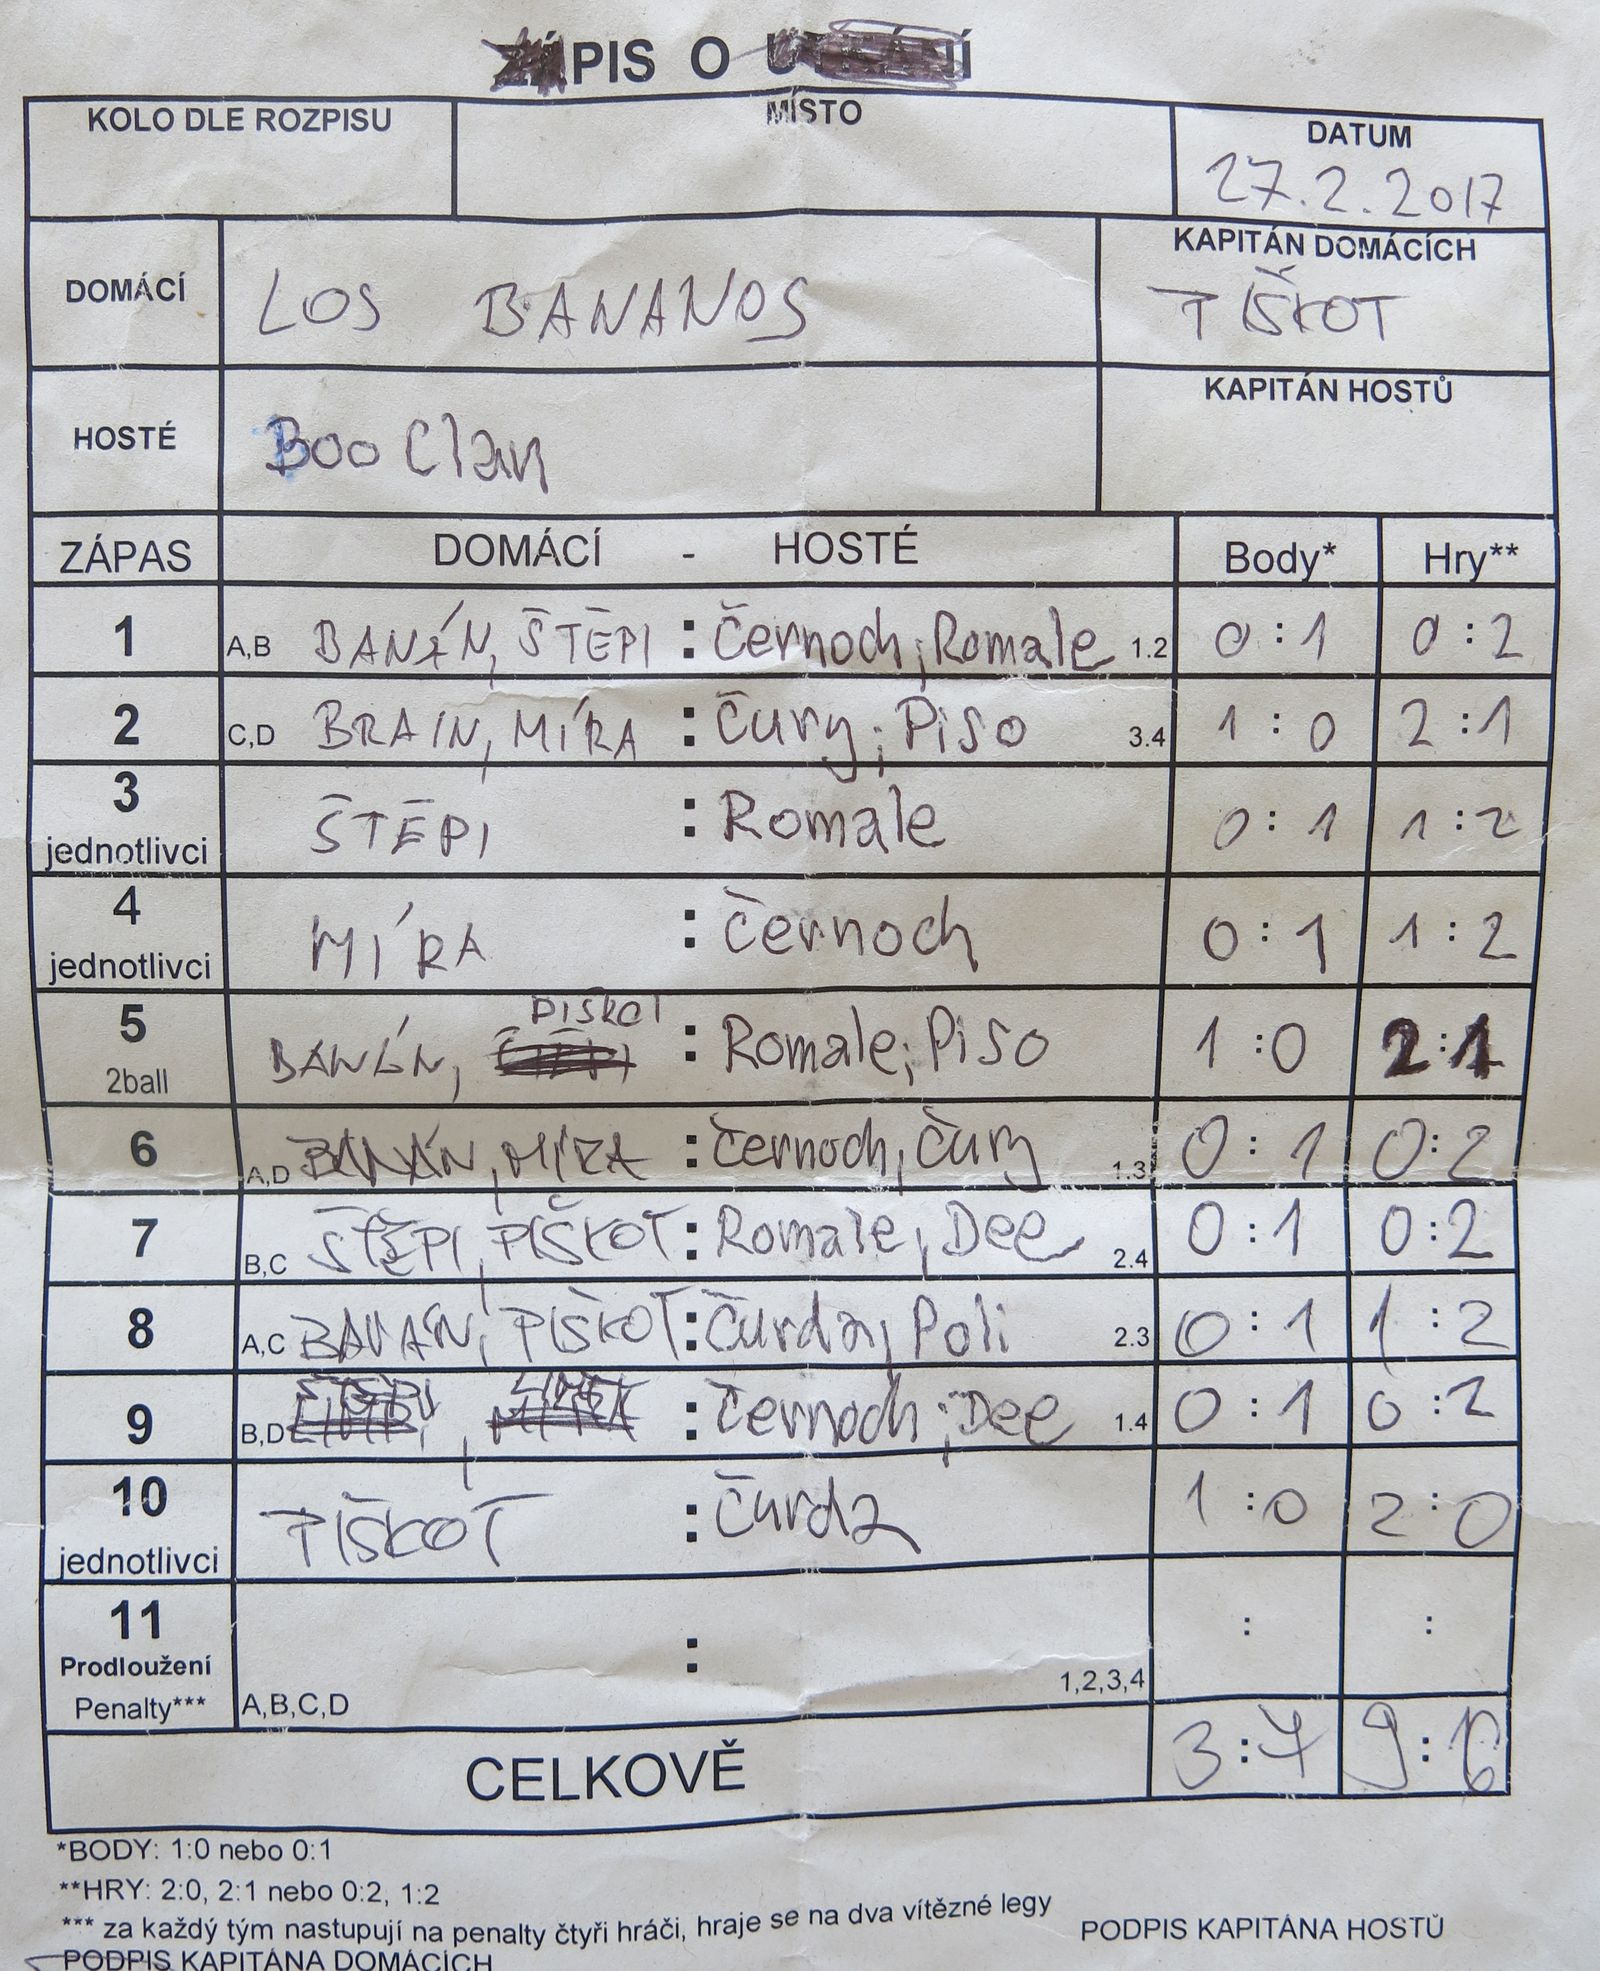 PIS O
KOLO DLE ROZPISU
MÍSTO
DATUM
27.2.2017
DOMÁCÍ
LOS BANANOS
KAPITÁN DOMÁCÍCH
PIŠKOT
HOSTÉ
Boo Clan
KAPITÁN HOSTŮ
ZÁPAS DOMÁCÍ - HOSTÉ Body* Hry**
1 A,B BANÁN, ŠTĚPI : Černoch; Romale 1.2 0:1 0:2
2 C,D BRAIN, MÍRA : Čury; Piso 3.4 1:0 2:1
3 jednotlivci ŠTĚPI : Romale 0:1 1:2
4 jednotlivci MÍRA : Černoch 0:1 1:2
PIŠKOT
5 2ball BANÁN, : Romale; Piso 1:0 2:1
6 A,D BANÁN, MÍRA : Černoch, Čury 1.3 0:1 0:2
7 B,C ŠTĚPI, PIŠKOT : Romale, Dee 2.4 0:1 0:2
8 A,C BANÁN, PIŠKOT : Čurda, Poli 2.3 0:1 1:2
9 B,D , : Černoch; Dee 1.4 0:1 0:2
10 jednotlivci PIŠKOT : Čurda 1:0 2:0
11 : : :
Prodloužení
Penalty*** A,B,C,D 1,2,3,4
CELKOVĚ 3:7 9:16
*BODY: 1:0 nebo 0:1
**HRY: 2:0, 2:1 nebo 0:2, 1:2
*** za každý tým nastupují na penalty čtyři hráči, hraje se na dva vítězné legy
PODPIS KAPITÁNA HOSTŮ
PODPIS KAPITÁNA DOMÁCÍCH